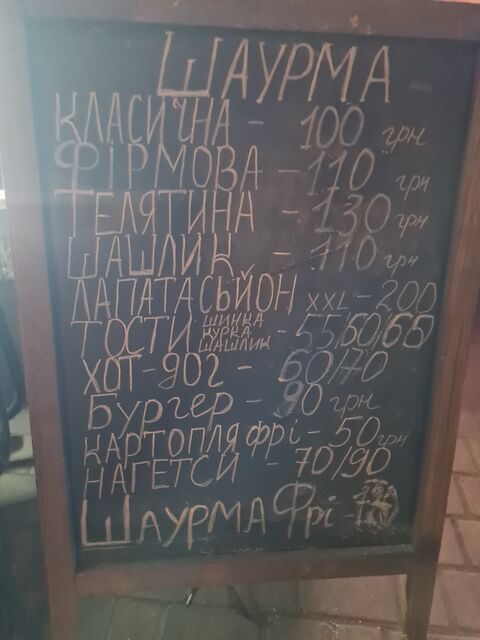 ШАУРМА
КЛАСИЧНА - 100 грн
ФІРМОВА - 110 грн
ТЕЛЯТИНА - 130 грн
ШАШЛИК - 110 грн
ЛАПАТАСЬЙОН XXL - 200
ТОСТИ ШИНКА КУРКА ШАШЛИК - 55/60/65
ХОТ-ДОГ - 60/70
Бургер - 90 грн
КАРТОПЛЯ фрі - 50 грн
НАГЕТСИ - 70/90
ШАУРМА Фрі -